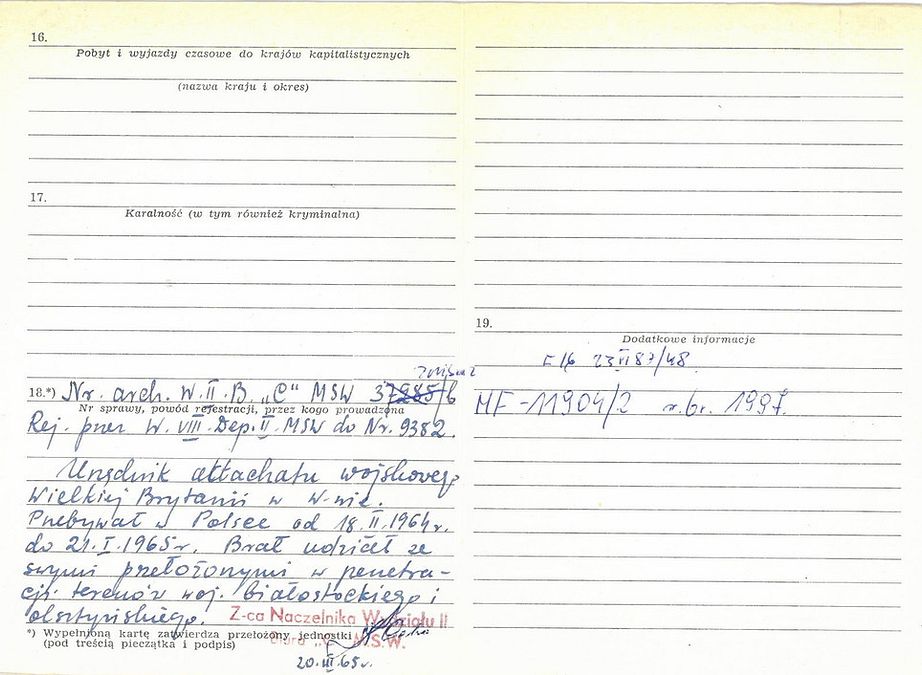 16.
Pobyt i wyjazdy czasowe do krajów kapitalistycznych
(nazwa kraju i okres)
17.
Karalność (w tym również kryminalna)
18.*) Nr. arch. W. II. B. „C" MSW 37985/6
Nr sprawy, powód rejestracji, przez kogo prowadzona
Rej. przez W. VIII. Dep. II. MSW do Nr. 9382.
Urzędnik attachatu wojskowego
Wielkiej Brytanii w W-wie.
Przebywał w Polsce od 18.II.1964r.
do 21.I.1965r. Brał udział ze
swymi przełożonymi w penetra-
cji terenów woj. białostockiego i
olsztyńskiego.
Z-ca Naczelnika Wydziału II
Biura „C" M.S.W.
*) Wypełnioną kartę zatwierdza przełożony jednostki
(pod treścią pieczątka i podpis)
20.III.65r.
19.
Dodatkowe informacje
23 VI 87/48
MF-11904/2 z.br. 1997.